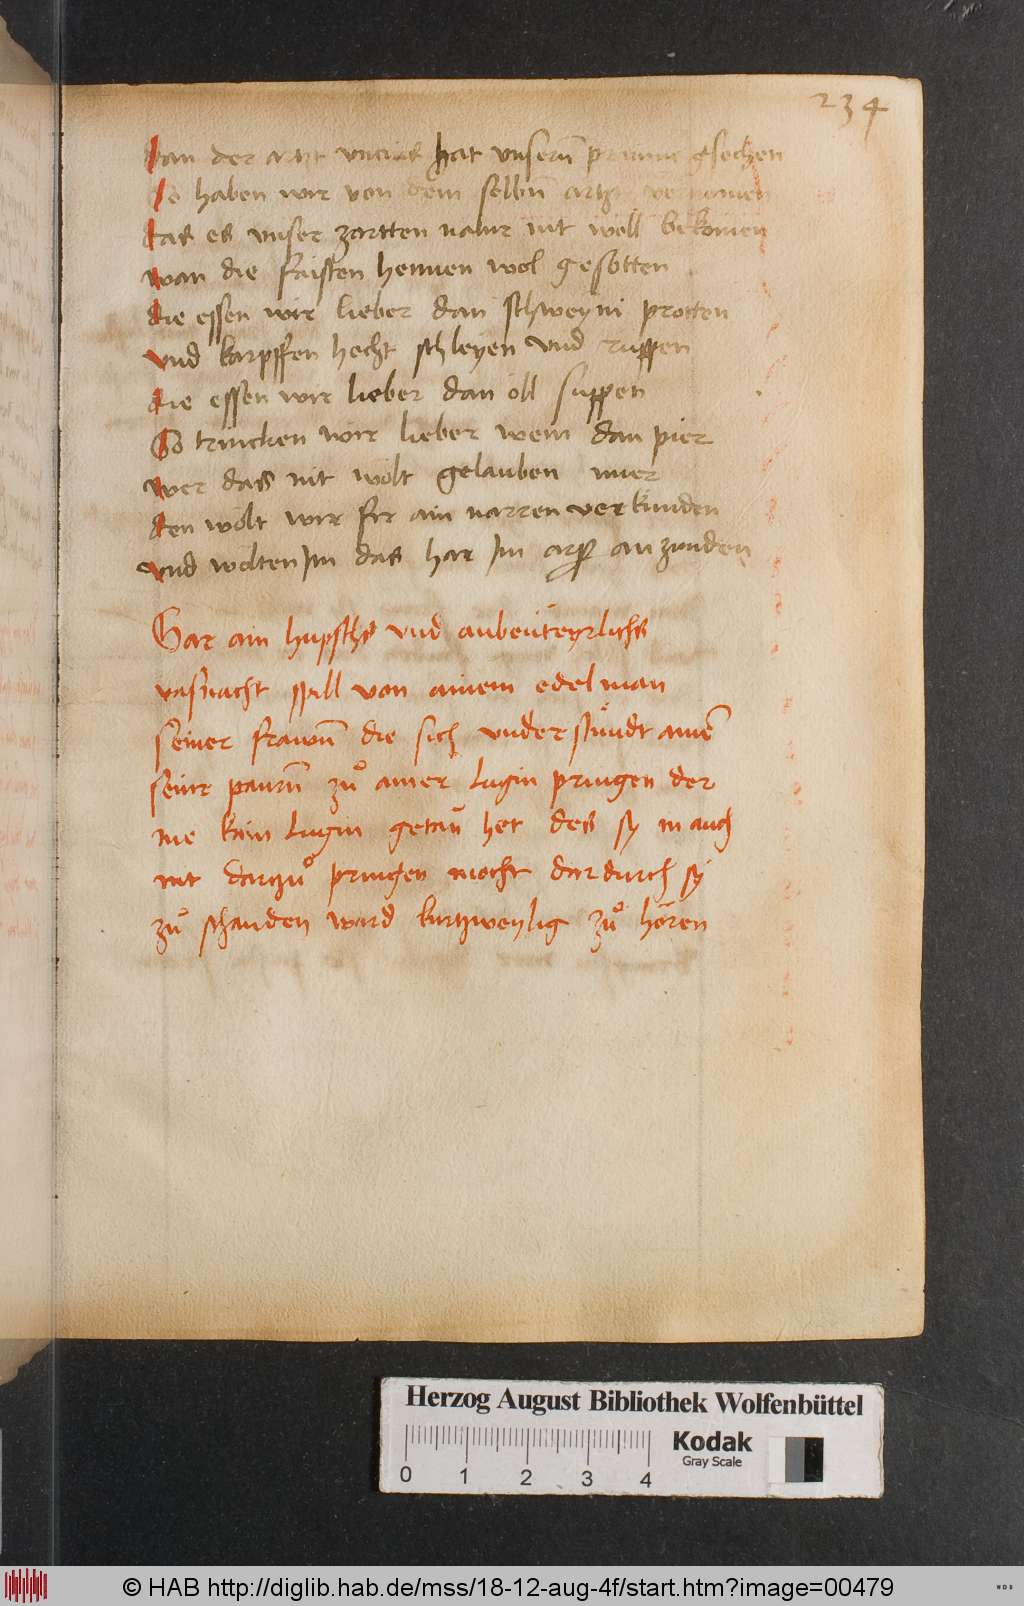 234
dan der artzt uncius hat unsern̄ prunnē gsechen
So haben wir von dem selbn̄ artzt vernomen
das es unser zartten natur nit woll bekomen
wan die faisten hennen wol gesotten
die essen wir lieber dan schweyni protten
und karpffen hecht schleyen und ruppen
die essen wir lieber dan öll suppen
So trincken wir lieber wein dan pier
wer das nit wölt gelauben mier
den wölt wir fir ain narren verkinden
und wolten Im das har Im arß an zunden
Gar ain hupschs und aubenteyrlichs
vasnacht spill von ainem edelman
seiner frawn̄ die sich under stůndt ainē
seinr paurn̄ zů ainer lugin pringen der
nie kain lugin getan̄ het des sy in auch
nit dartzů pringen mocht dardurch sy
zů schanden ward kurtzweylig zů hören
Herzog August Bibliothek Wolfenbüttel
Kodak
Gray Scale
0 1 2 3 4
© HAB http://diglib.hab.de/mss/18-12-aug-4f/start.htm?image=00479